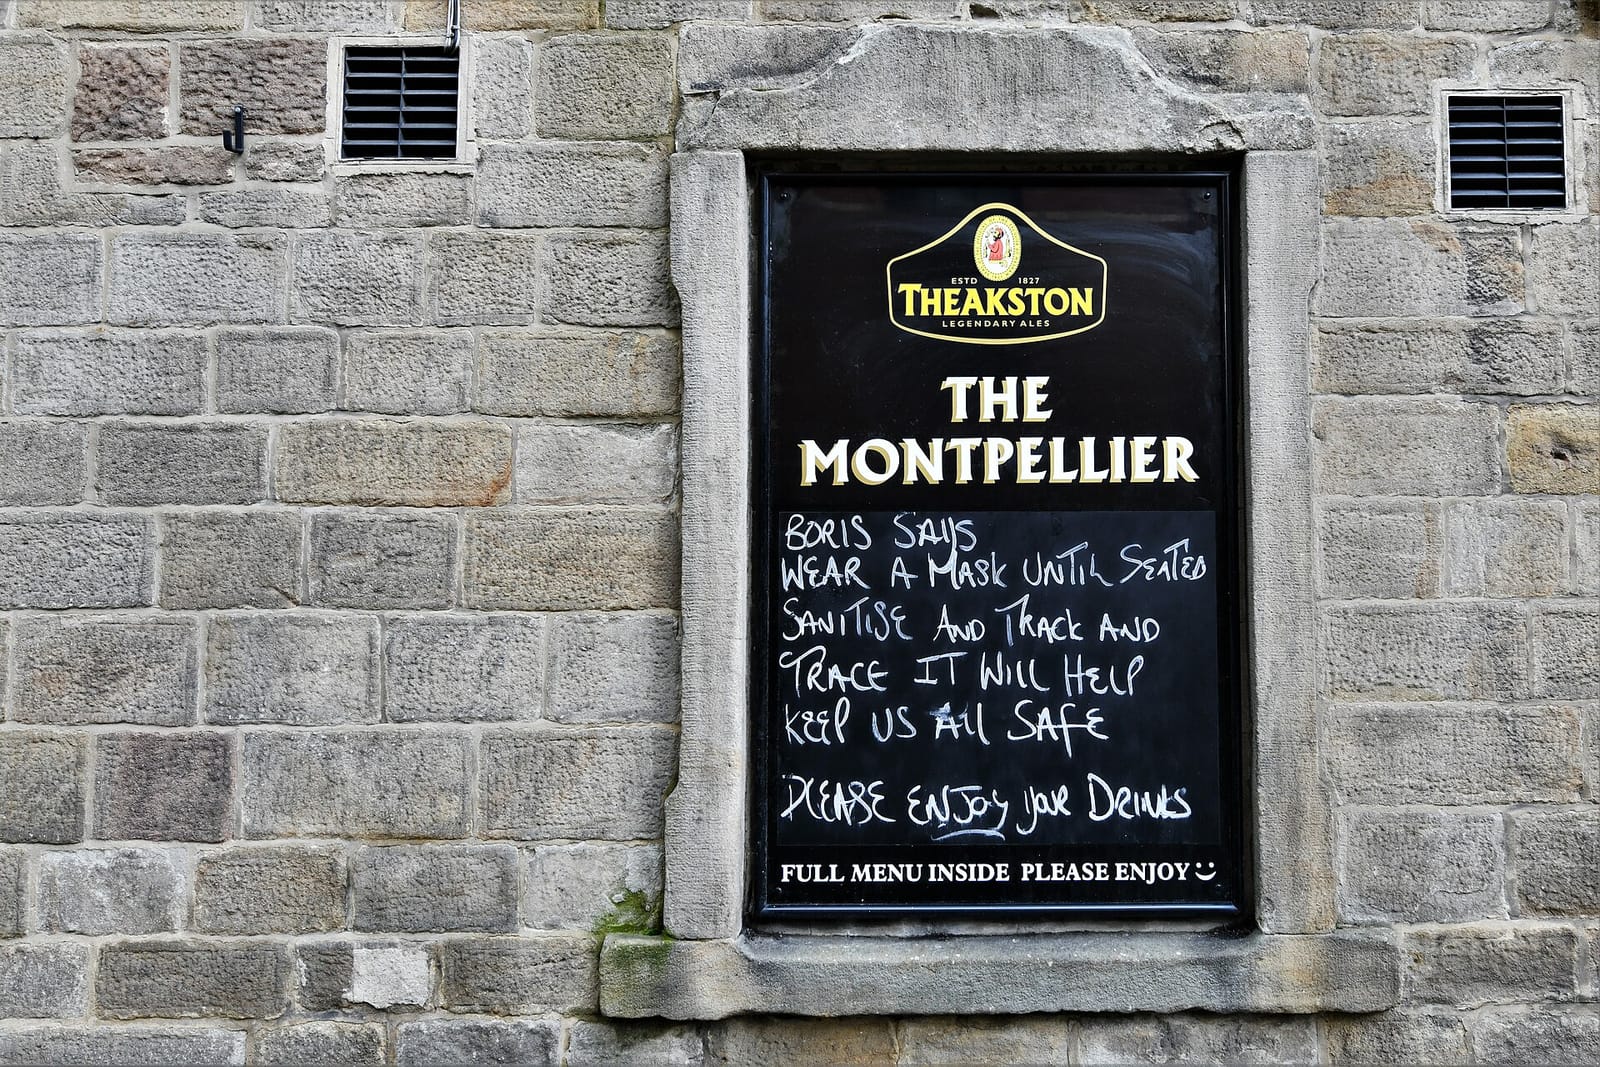 ESTD 1827
THEAKSTON
LEGENDARY ALES
THE
MONTPELLIER
BORIS SAYS
WEAR A MASK UNTIL SEATED
SANITISE AND TRACK AND
TRACE IT WILL HELP
KEEP US All SAFE
PLEASE ENJOY YOUR DRINKS
FULL MENU INSIDE PLEASE ENJOY